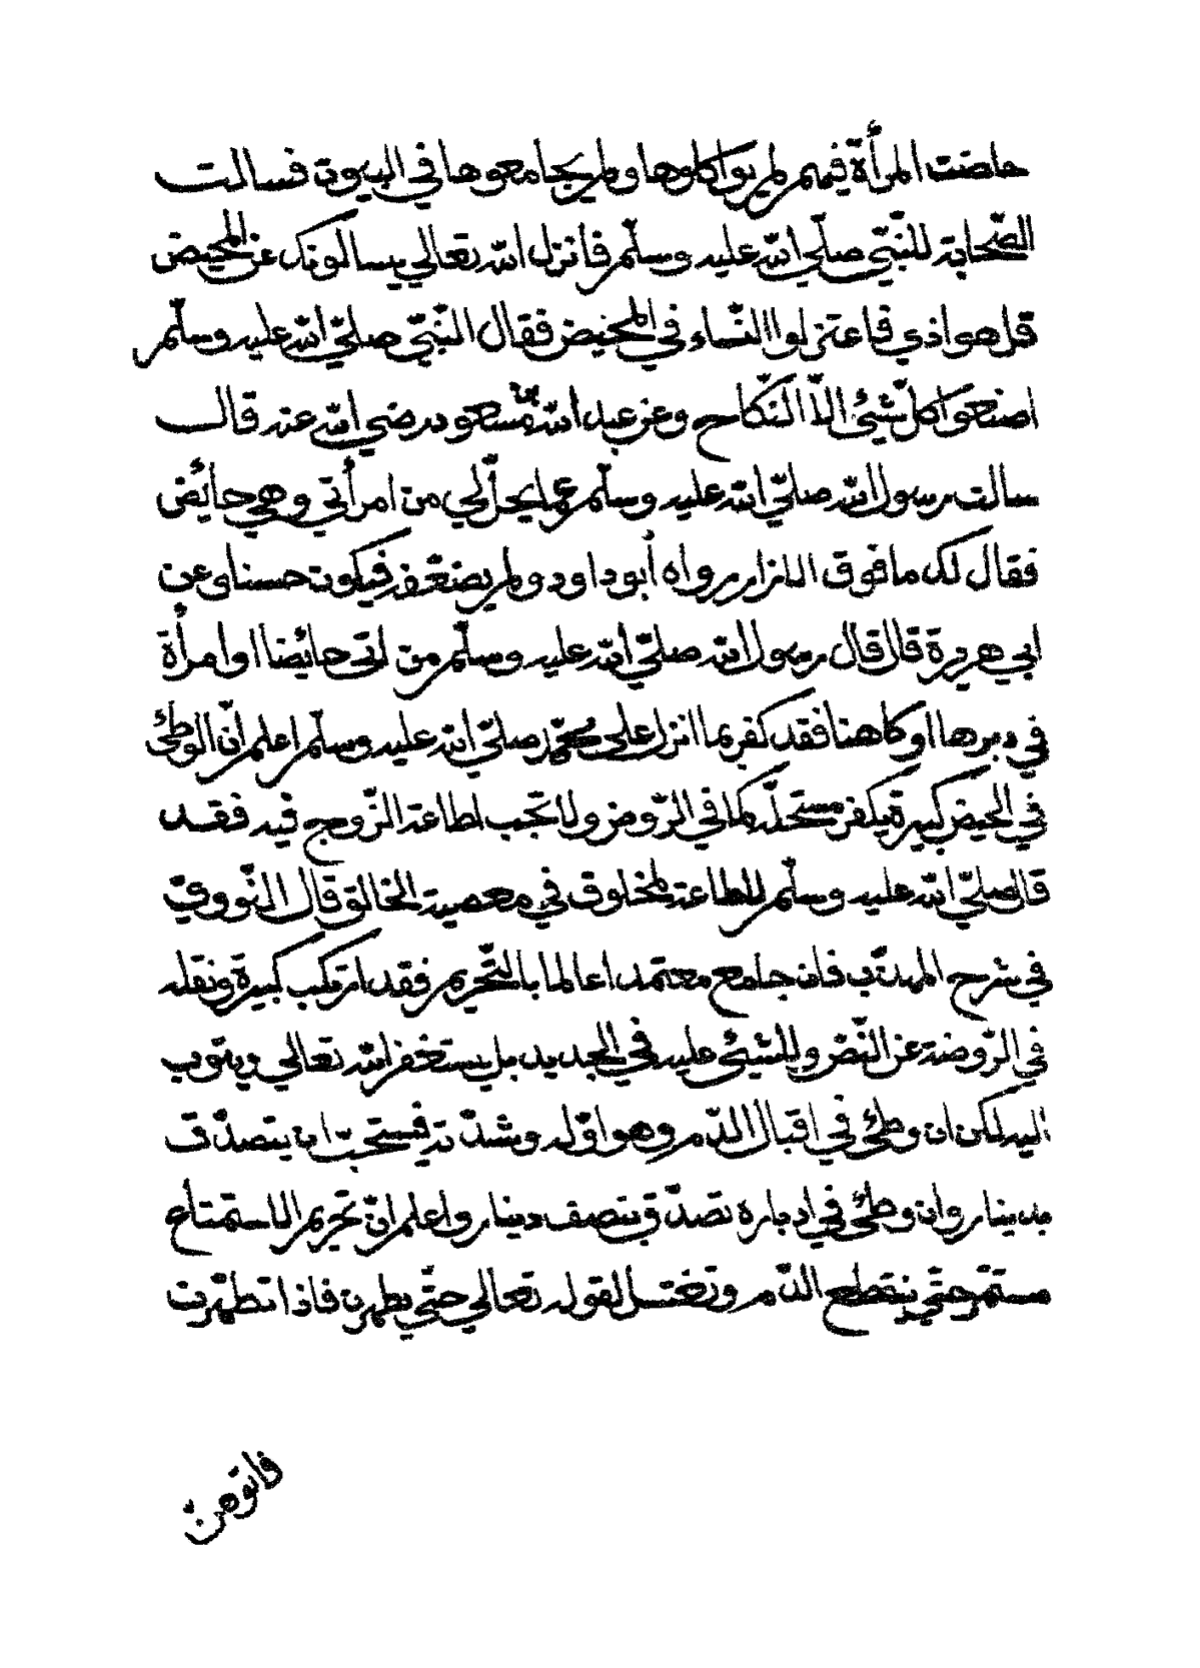 حاضت المرأة فيهم لم يواكلوها ولم يجامعوها في البيوت فسالت
الصّحابة للنبيّ صلّي الله عليه وسلّم فانزل الله تعالي يسالونك عن المحيض
قل هو اذي فاعتزلوا النّساء في المحيض فقال النّبيّ صلّي الله عليه وسلّم
اصنعوا كلّ شيئ الّا النّكاح وعن عبد الله بن مسعود رضي الله عنه قال
سالت رسول الله صلّي الله عليه وسلّم عمّا يحلّ لي من امرأتي وهي حائض
فقال لك ما فوق الازار رواه أبو داود ولم يضعّفه فيكون حسنا وعن
ابي هريرة قال قال رسول الله صلّي الله عليه وسلّم من اتى حائضا او امرأة
في دبرها او كاهنا فقد كفر بما انزل علي محمّد صلّي الله عليه وسلّم اعلم انّ الوطئ
في الحيض كبيرة يكفر مستحلّه كما في الرّوض ولا تجب اطاعة الزّوج فيه فقد
قال صلّي الله عليه وسلّم لا طاعة لمخلوق في معصية الخالق قال النّوويّ
في شرح المهذّب فان جامع معتمدا عالما بالتّحريم فقد ارتكب كبيرة ونقله
في الرّوضة عن النّصّ ولا شيئ عليه في الجديد بل يستغفر الله تعالي ويتوب
اليه لكن ان وطئ في اقبال الدّم وهو اوّله وشدّته فيستحبّ ان يتصدّق
بدينار وان وطئ في ادباره تصدّق بنصف دينار واعلم انّ تحريم الاستمتاع
مستمرّ حتّي ينقطع الدّم وتغتسل لقوله تعالي حتّي يطهرن فاذا تطهّرن
فاتوهنّ